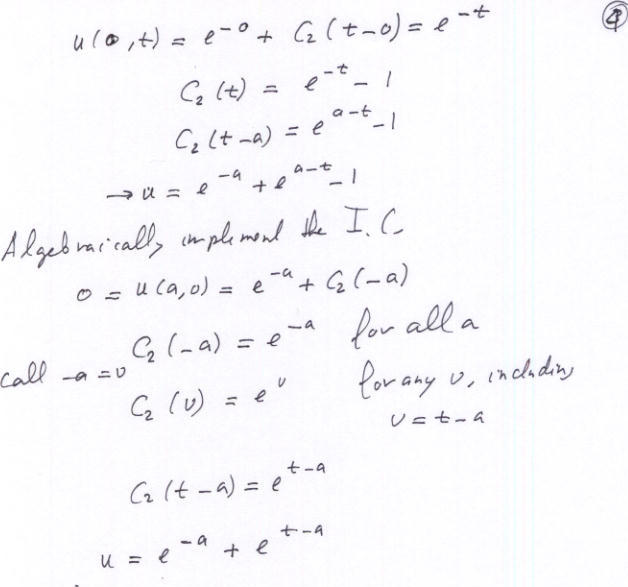 ④
u(0,t) = e^{-0} + C₂(t-0) = e^{-t}
C₂(t) = e^{-t} - 1
C₂(t-a) = e^{a-t} - 1
→ u = e^{-a} + e^{a-t} - 1
Algebraically implement the I.C.
0 = u(a,0) = e^{-a} + C₂(-a)
C₂(-a) = e^{-a} for all a
call -a = υ
C₂(υ) = e^{υ} for any υ, including
υ = t-a
C₂(t-a) = e^{t-a}
u = e^{-a} + e^{t-a}